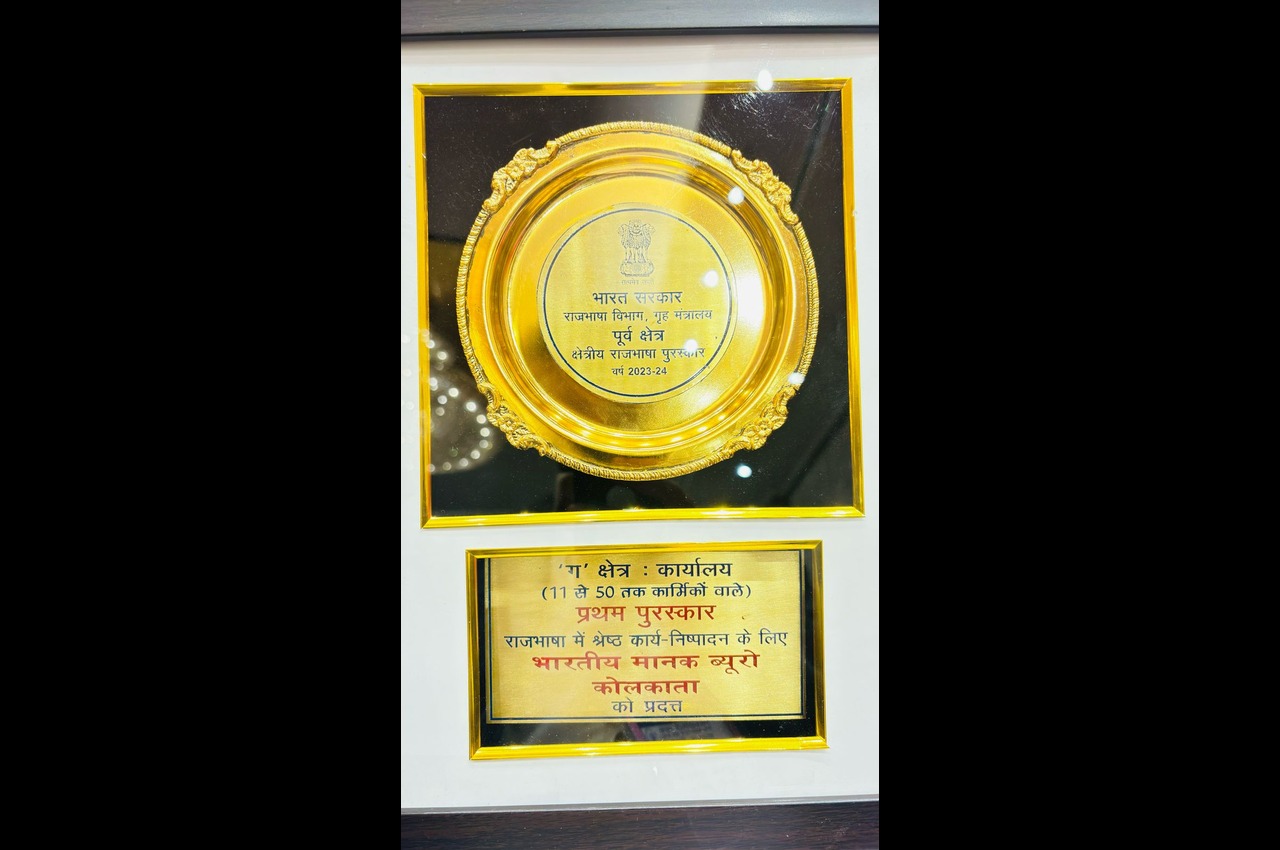 भारत सरकार
राजभाषा विभाग, गृह मंत्रालय
पूर्व क्षेत्र
क्षेत्रीय राजभाषा पुरस्कार
वर्ष 2023-24
'ग' क्षेत्र : कार्यालय
(11 से 50 तक कार्मिकों वाले)
प्रथम पुरस्कार
राजभाषा में श्रेष्ठ कार्य-निष्पादन के लिए
भारतीय मानक ब्यूरो
कोलकाता
को प्रदत्त